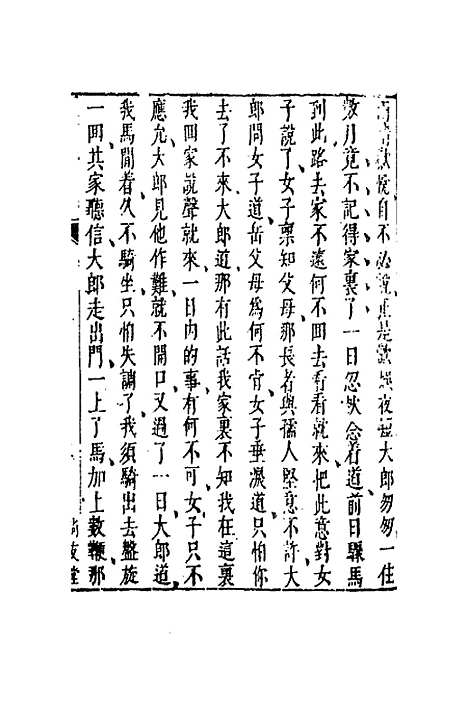 自不必說直是歡娛夜短大郎匆匆一住
數月竟不記得家裏了一日忽然念着道前日驟馬
到此路去家不遠何不回去看看就來把此意對女
子說了女子稟知父母那長者與孺人堅意不許大
郎問女子道岳父母爲何不肯女子垂淚道只怕你
去了不來大郎道那有此話我家裏不知我在這裏
我回家說聲就來一日內的事有何不可女子只不
應允大郎見他作難就不開口又過了一日大郎道
我馬閒着久不騎坐只怕失調了我須騎出去盤旋
一回其家聽信大郎走出門一上了馬加上數鞭那
尚友堂